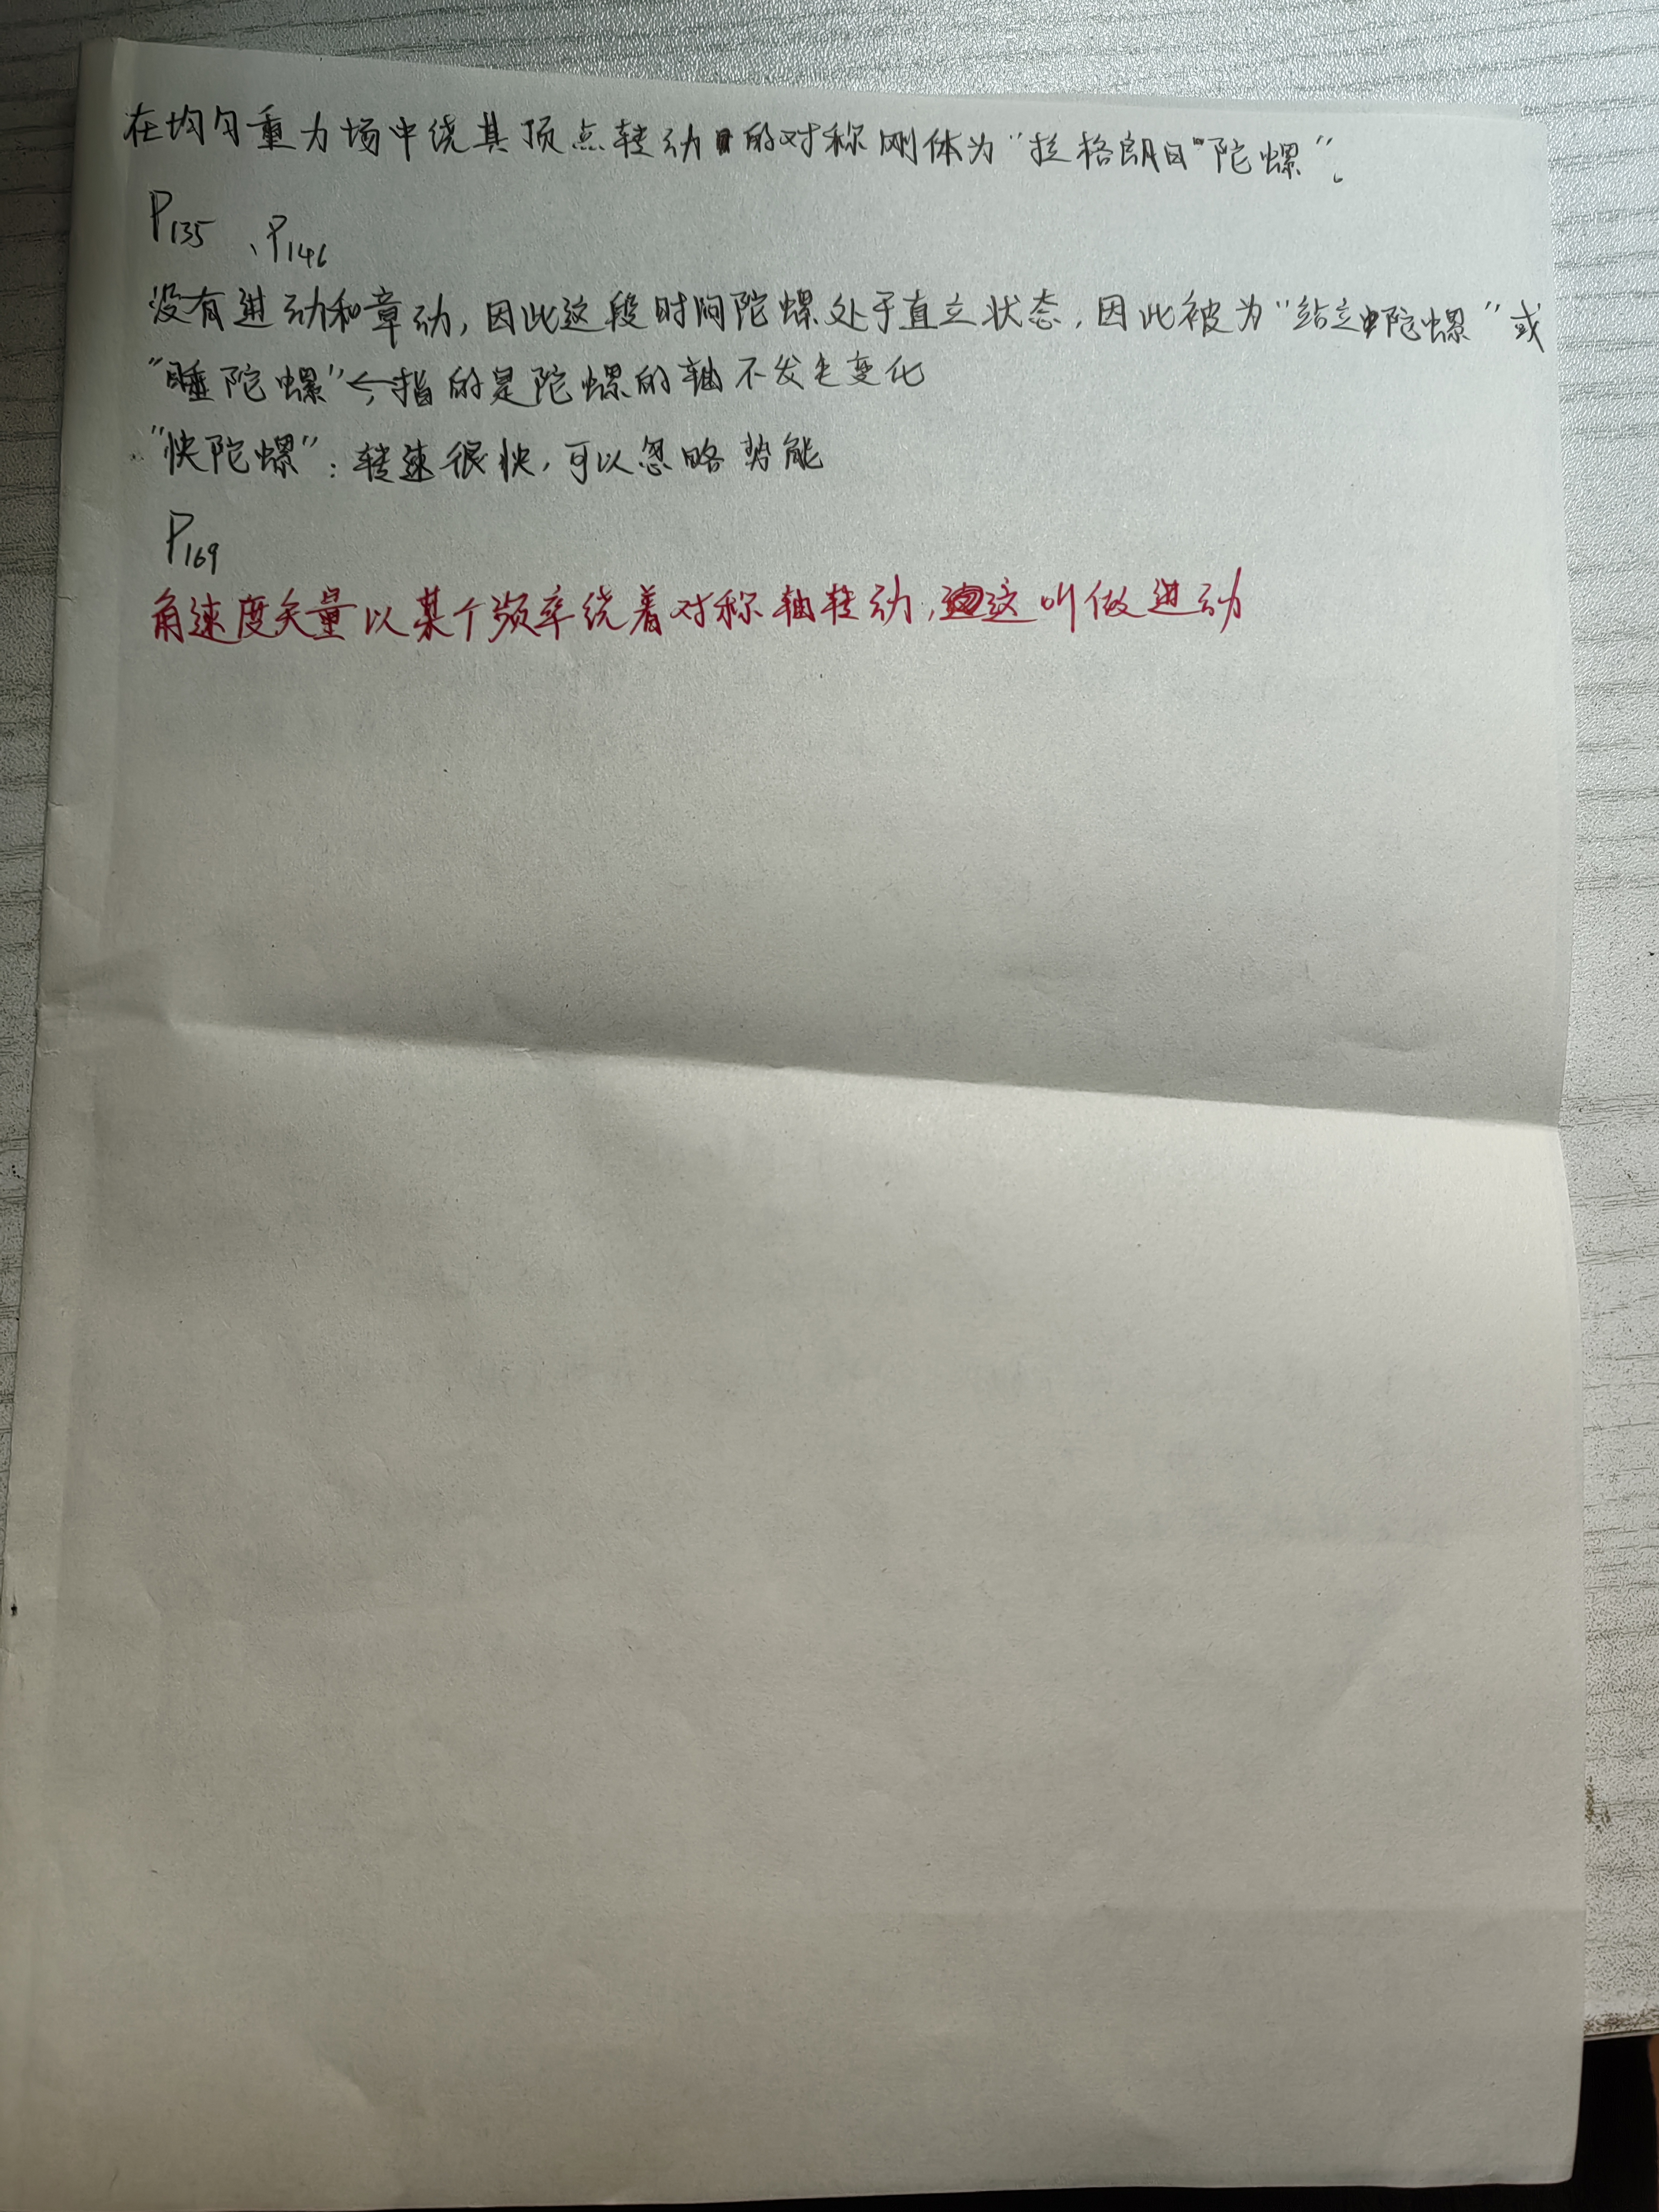 在均匀重力场中绕其顶点转动的对称刚体为“拉格朗日”陀螺”。
P135 、P146
没有进动和章动，因此这段时间陀螺处于直立状态，因此被为“站立陀螺”或
“睡陀螺”←指的是陀螺的轴不发生变化
“快陀螺”：转速很快，可以忽略势能
P169
角速度矢量以某个频率绕着对称轴转动，这叫做进动